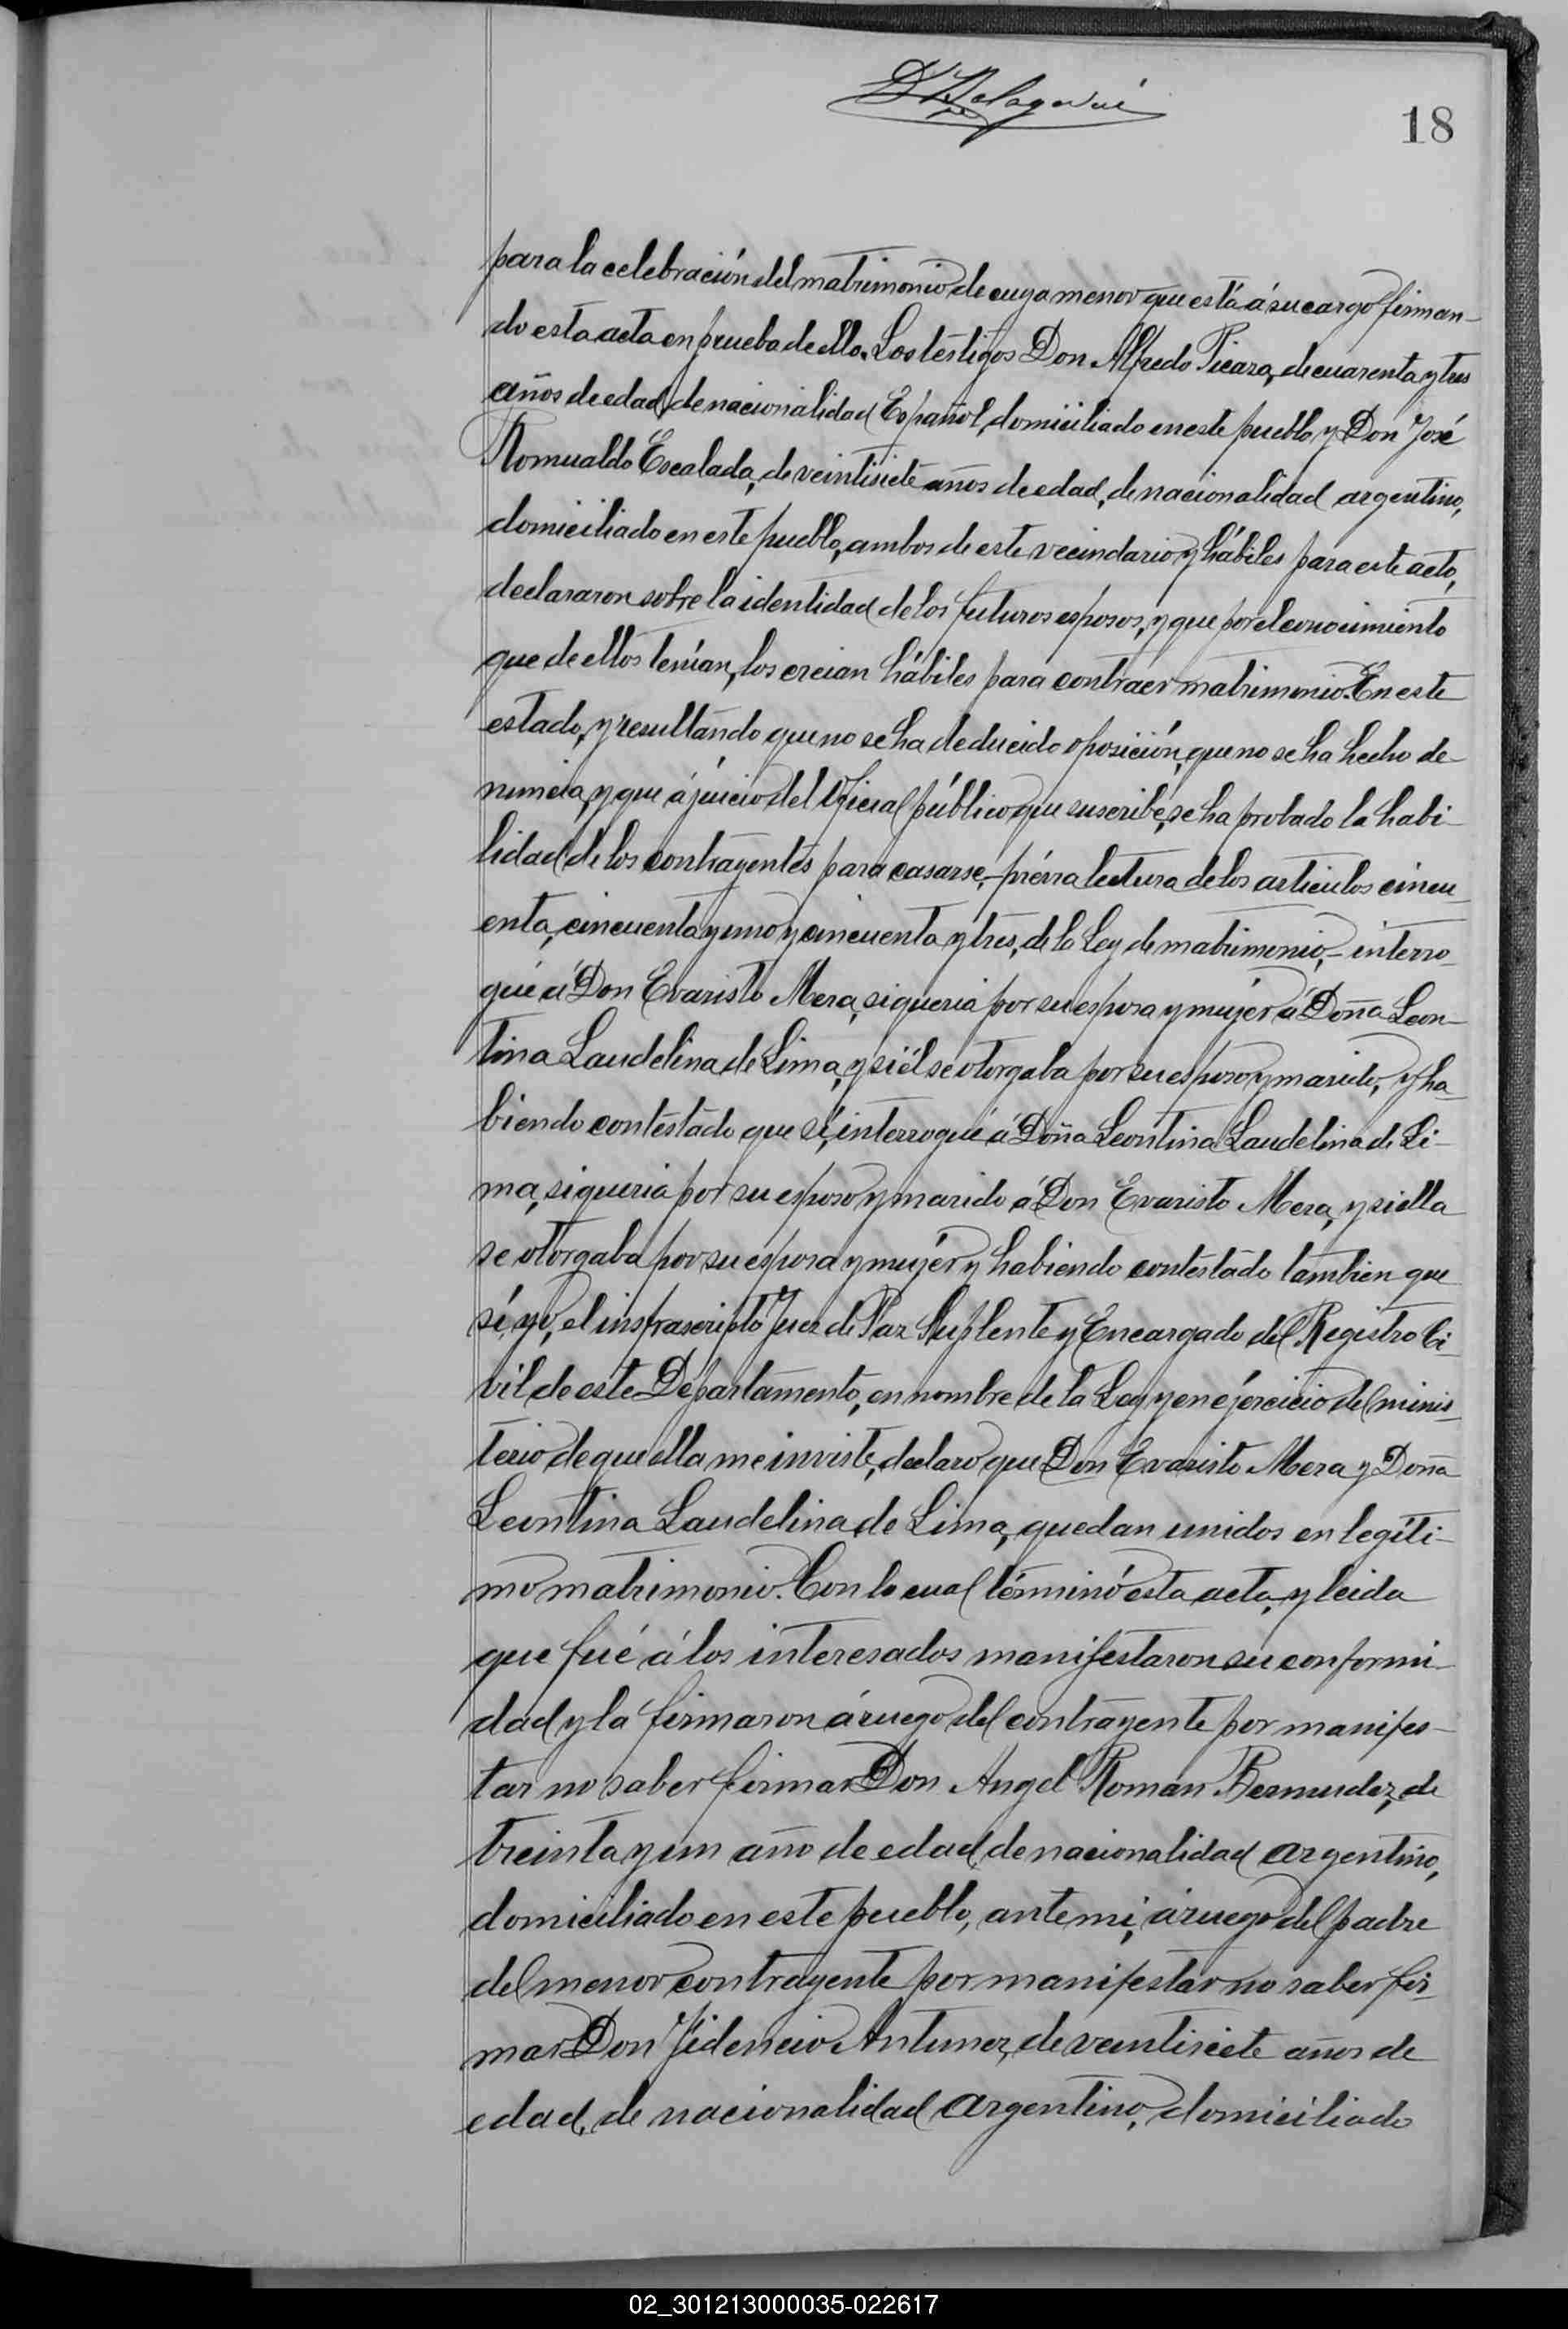 18
para la celebración del matrimonio de cuya menor que está á su cargo firman-
do esta acta en prueba de ello. Los testigos Don Alfredo Picara, de cuarenta y tres
años de edad, de nacionalidad Español, domiciliado en este pueblo, y Don José
Romualdo Escalada, de veintisiete años de edad, de nacionalidad argentino,
domiciliado en este pueblo, ambos de este vecindario y hábiles para este acto,
declararon sobre la identidad de los futuros esposos, y que por el conocimiento
que de ellos tenían, los creian hábiles para contraer matrimonio. En este
estado, y resultando que no se ha deducido oposición, que no se ha hecho de-
nuncia, y que á juicio del Oficial público que suscribe, se ha probado la habi-
lidad de los contrayentes para casarse, - prévia lectura de los articulos cincu-
enta, cincuenta y uno y cincuenta y tres, de la Ley de matrimonio, - interro-
gué á Don Evaristo Mera, si queria por su esposa y mujer á Doña Leon-
tina Laudelina de Lima, y si él se otorgaba por su esposo y marido, y ha-
biendo contestado que sí, interrogué á Doña Leontina Laudelina de Li-
ma, si queria por su esposo y marido á Don Evaristo Mera, y si ella
se otorgaba por su esposa y mujér y habiendo contestado tambien que
sí, yo, el insfrascripto Juez de Paz Suplente y Encargado del Registro Ci-
vil de este Departamento, en nombre de la Ley y en ejercicio del minis-
terio de que ella me inviste, declaro que Don Evaristo Mera y Doña
Leontina Laudelina de Lima, quedan unidos en legíti-
mo matrimonio. Con lo cual términó esta acta, y leida
que fué á los interesados manifestaron su conformi-
dad y la firmaron á ruego del contrayente por manifes-
tar no saber firmar Don Angel Roman Bermudez, de
treinta y un año de edad, de nacionalidad argentino,
domiciliado en este pueblo, ante mi, á ruego del padre
del menor contrayente por manifestar no saber fir-
mar Don Fidencio Antunez, de veintisiete años de
edad, de nacionalidad argentino, domiciliado
02_301213000035-022617